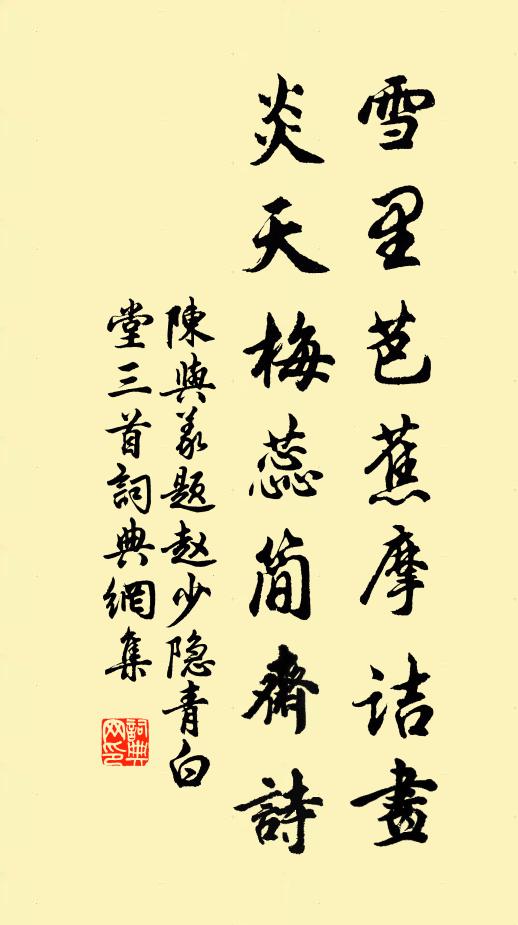 雪里芭蕉摩诘畫
炎天梅蕊简齋詩
陳與義题赵少隐青白
堂三首詞典網集
詞典网印